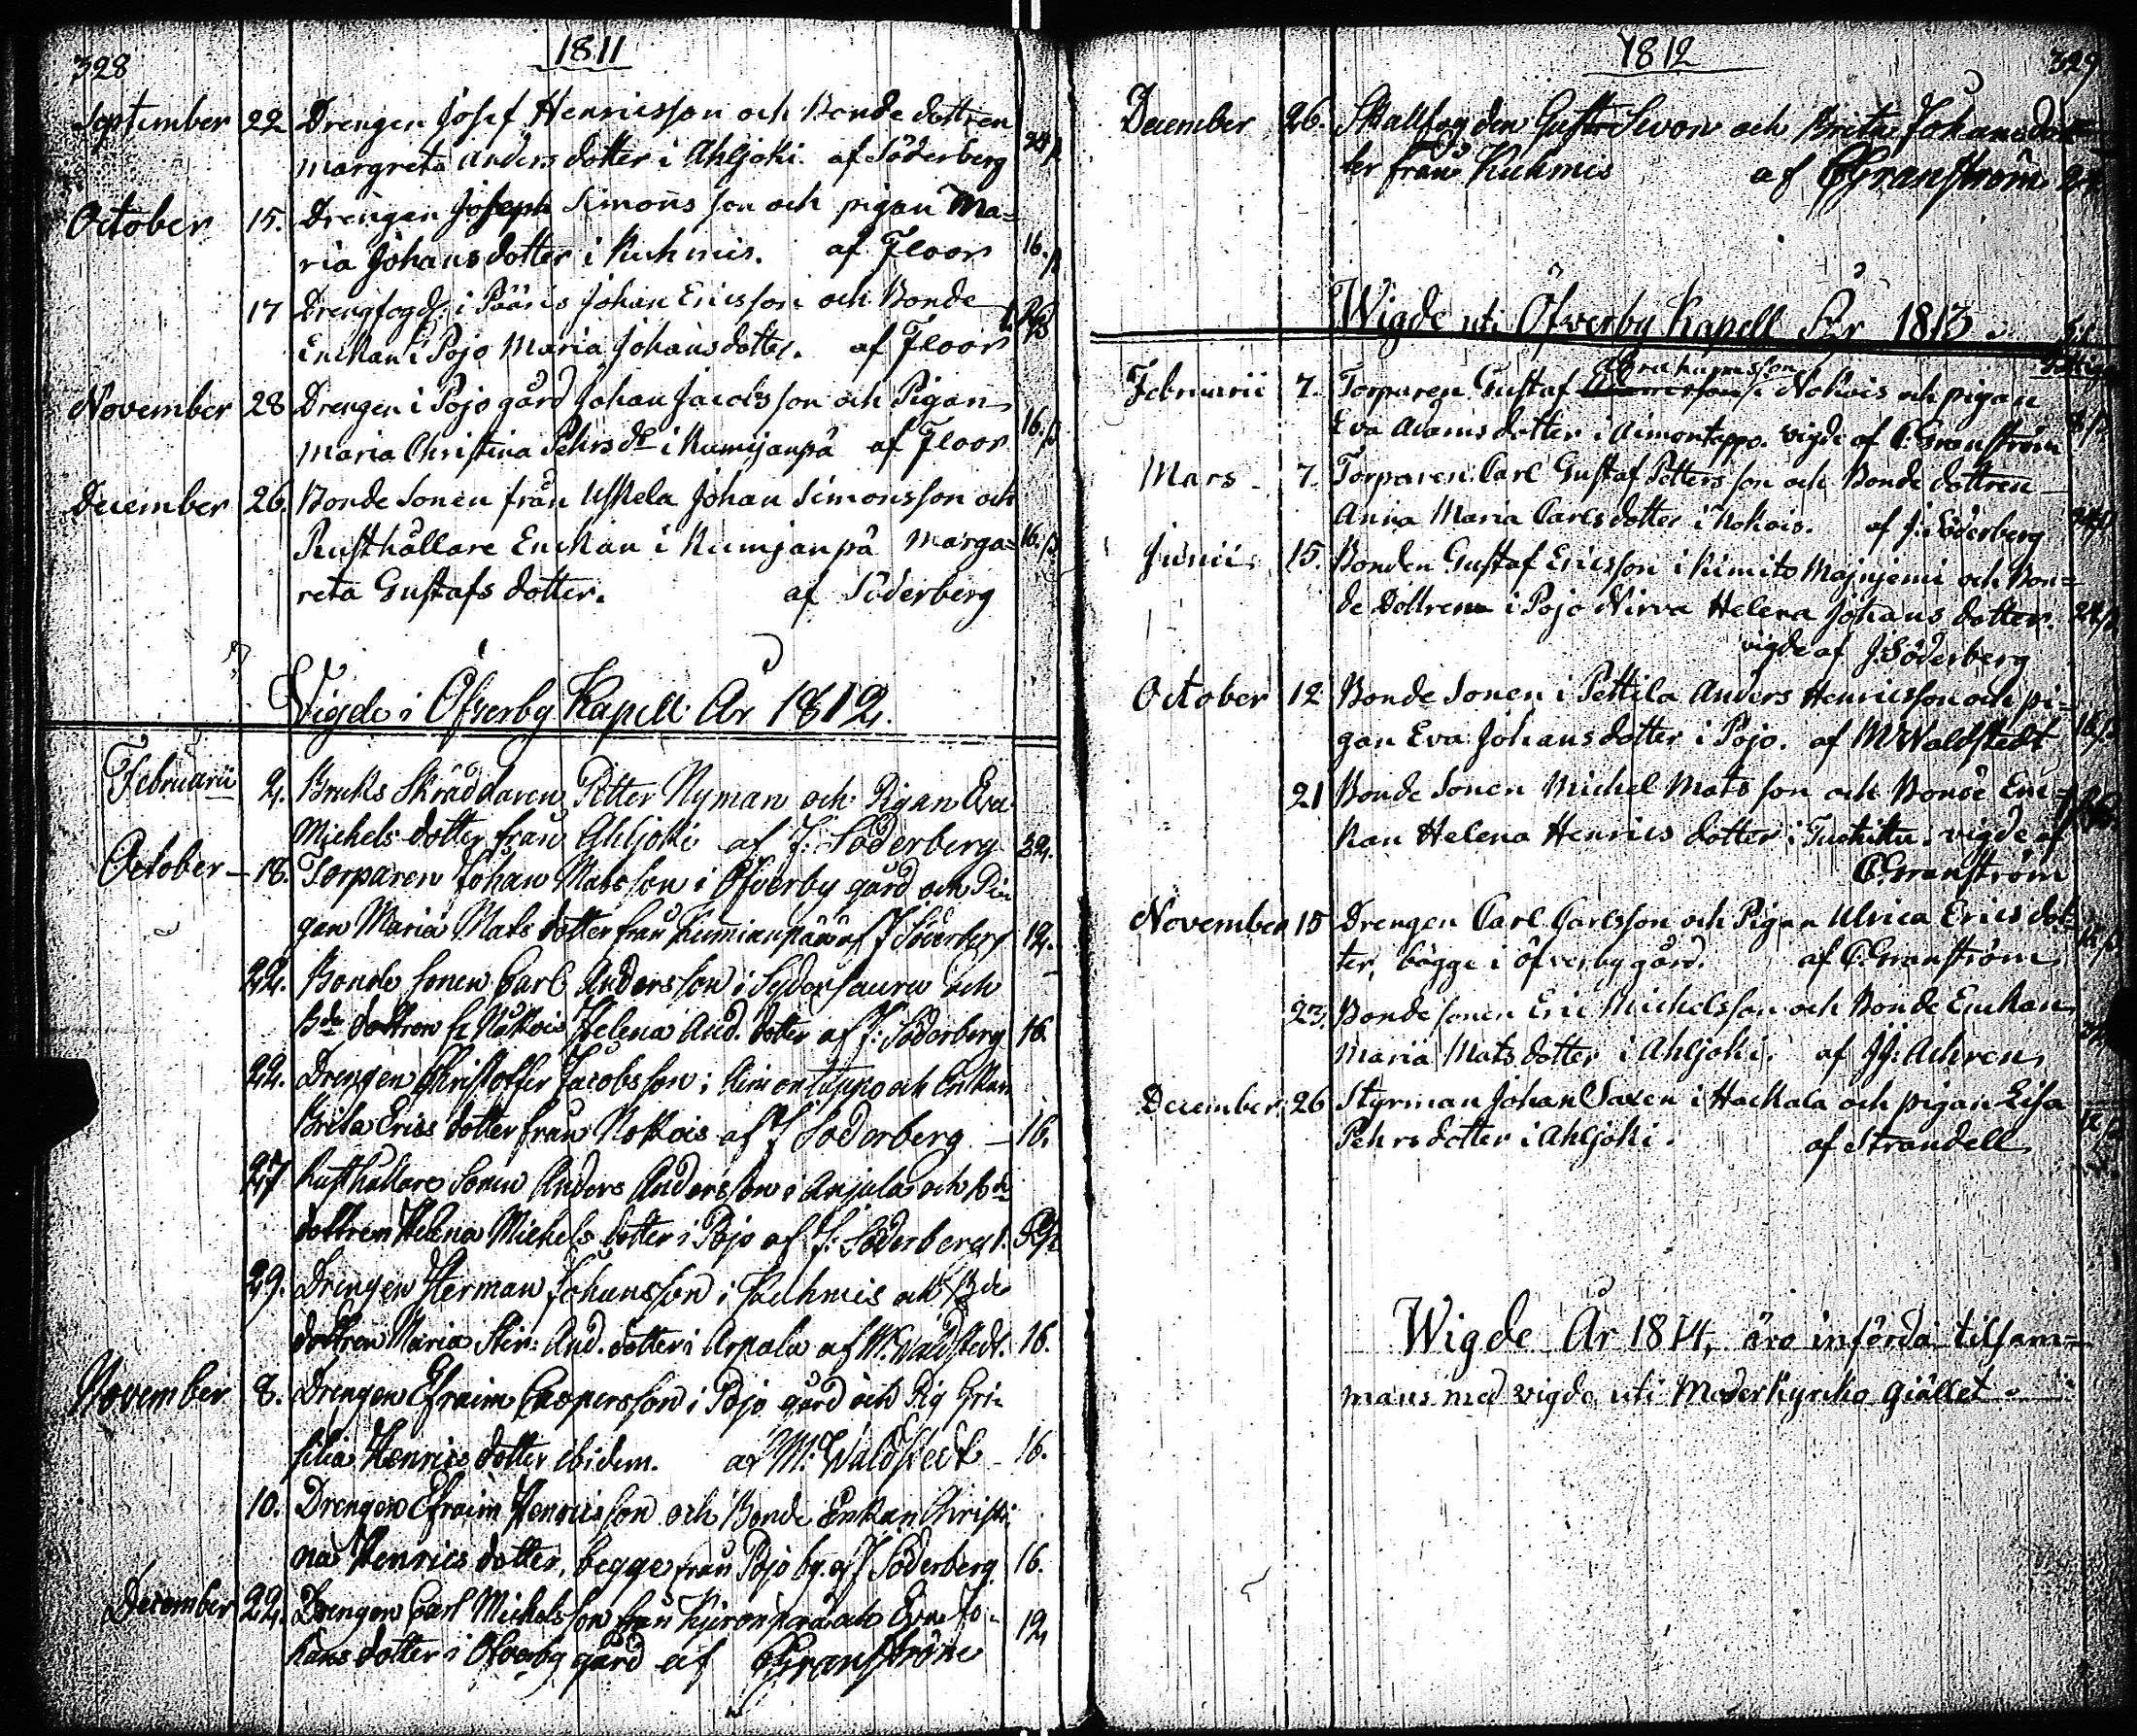 328
1811
September 22 Drengen Josef Henricsson och Bonde dottren
Margreta Anders dotter i Ahljoki. af Söderberg 24 ß
October 15. Drengen Joseph Simons son och pigan Ma=
ria Johans dotter i Kuhmis. af Floor 16. ß
17 Drengfogd: i Pääris Johan Ericsson och Bonde
Enckan i Pojo Maria Johansdotter. af Floor
November 28 Drengen i Pojo gård Johan Jacobs son och Pigan
Maria Christina Pehrs dr i Kumijanpä af Floor 16. ß
December 26. Bonde Sonen från Uskela Johan Simonsson och
Rusthållare Enckan i Kumjanpä Marga= 16. ß
reta Gustafs dotter. af Söderberg
Vigde i Öfverby Kapell År 1812.
Februarii 2. Bruks Skräddaren Petter Nyman och Pigan Eva
Michels dotter från Ahljoki af J: Söderberg 32.
October - 18. Torparen Johan Matsson i Öfverby gård och Pi=
gan Maria Mats dotter från Kumianpää af J Söderberg 12.
22. Bonde sonen Carl Andersson i och
Bde dottren fr Nåkois Helena And. dotter af J: Söderberg 16.
22. Drengen Christoffer Jacobsson i Aimontappo och Enkan
Brita Erics dotter från Nokois af J Söderberg - 16.
27 Rusthållare Sonen Anders Andersson i Anjala och Bde
dottren Helena Michels dotter i Pojo af J: Söderberg 1.
29. Drengen Herman Johansson i Kuhmis och Bde
dottren Maria Stin: And. dotter i Arpala af M. Waldstedt. 16.
November 8. Drengen Efraim Caspersson i Pojo gård och Pig Cri=
silia Henrics dotter ibidem. af M: Waldstedt - 16.
10. Drengen Efraim Henricsson och Bonde Enkan Christi
na Henrics dotter, begge från Pojo by. af J Söderberg. 16.
December 22. Drengen Carl Michelsson från och Eva Jo=
hans dotter i Öfverby gård af CGranström 12
1812
329
December 26. Skallfogden Gustf Sevon och Brita Johansdot=
ter från Kuhmis af CGranström 24
Wigde uti Öfverby Kapell År 1813.
Februarii 7. Torparen Gustaf Abrahamsson i Nokois och pigan
Eva Adams dotter i Aimontappo. vigde af C: Granström
Mars - 7. Torparen Carl Gustaf Petters son och Bonde dottren
Anna Maria Carls dotter i Nokois. af J. Söderberg 24 ß
Junii 15. Bonden Gustaf Ericsson i Kimito Majnjemi och Bon=
de Dottren i Pojo Nirva Helena Johans dotter. 24 ß
vigde af J. Söderberg
October 12 Bonde Sonen i Pettila Anders Henricsson och pi=
gan Eva Johans dotter i Pojo. af M Waldstedt 16 ß
21 Bonde Sonen Michel Mats son och Bonde En=
kan Helena Henrics dotter i vigde af
C. Granström
November 15 Drengen Carl Carlsson och Pigan Ulrica Erics dot=
ter, bägge i Öfverby gård. af C. Granström
23. Bonde sonen Eric Michelsson och Bonde Enckan
Maria Mats dotter i Ahljoki. af JJ: Achren
December 26 Styrman Johan Saxen i Hackala och pigan Lisa
Pehrs dotter i Ahljoki. af Strandell
Wigde År 1814, äro införda tilsam=
mans med vigde uti Moderkyrko Giället